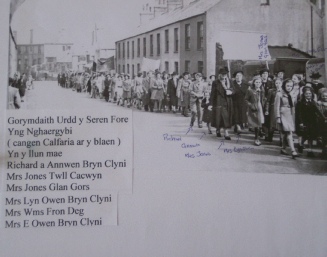 Gorymdaith Urdd y Seren Fore
Yng Nghaergybi
( cangen Calfaria ar y blaen )
Yn y llun mae
Richard a Annwen Bryn Clyni
Mrs Jones Twll Cacwyn
Mrs Jones Glan Gors
Mrs Lyn Owen Bryn Clyni
Mrs Wms Fron Deg
Mrs E Owen Bryn Clyni
Richard
Annwen
Mrs Jones